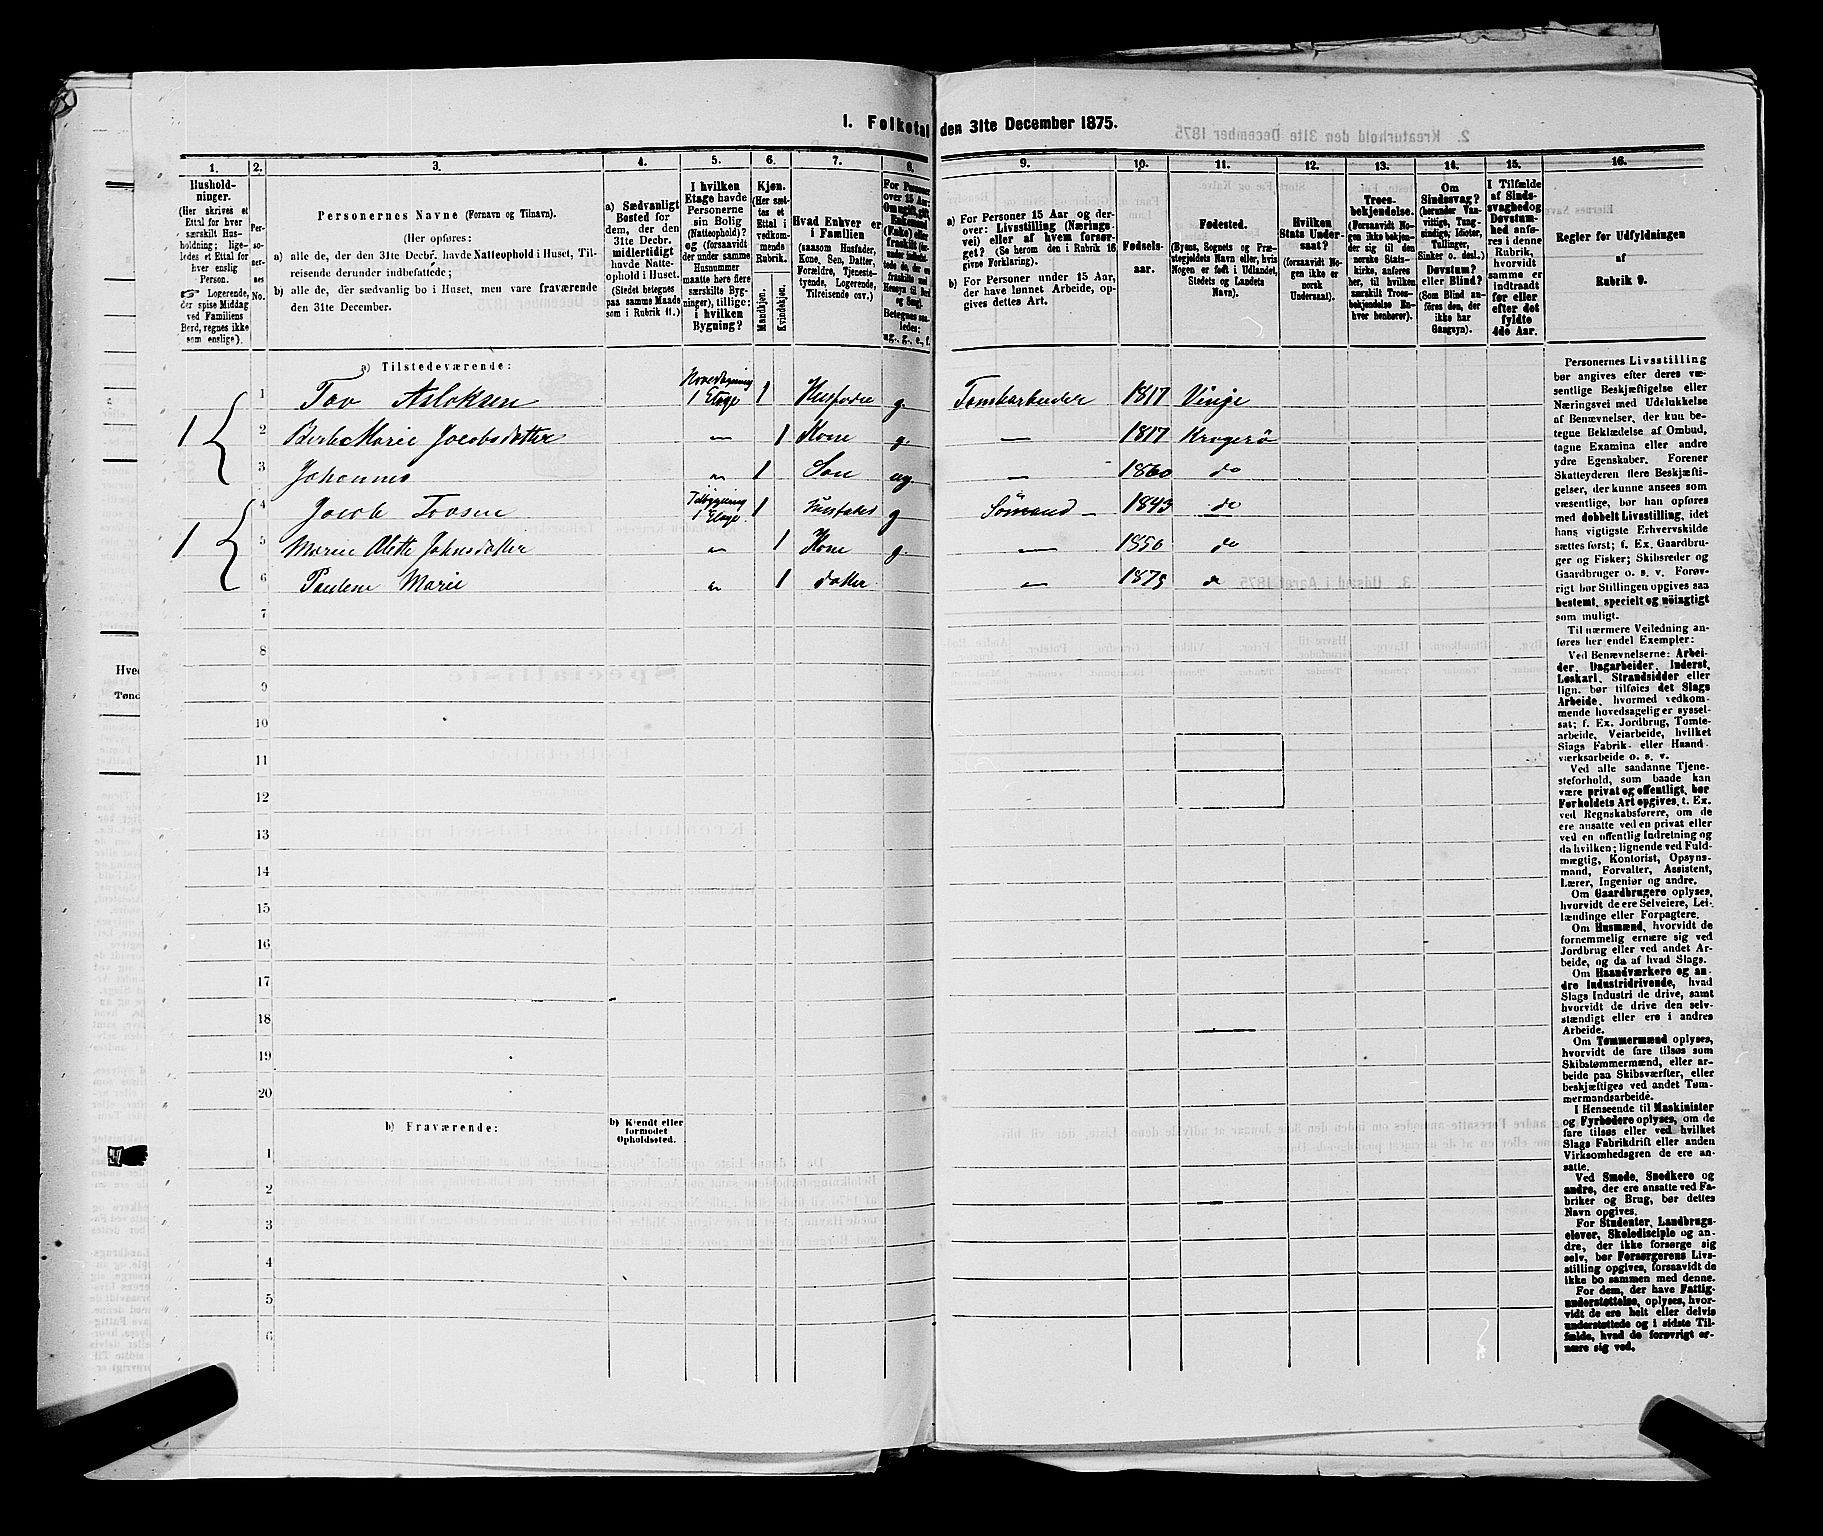 1. Folketal den 31te December 1875.
1. 2. 3. 4. 5. 6. 7. 8. 9. 10. 11. 12. 13. 14. 15. 16.
Hushold-
ninger.
(Her skrives et
Ettal for hver
særskilt Hus-
holdning; lige-
ledes et Ettal for
hver enslig
Person.
☞ Logerende,
der spise Middag
ved Familiens
Berd, regnes ikke
som enslige).
Per-
so-
ner-
nes
No.
Personernes Navne (Fornavn og Tilnavn).
(Her opføres:
a) alle de, der den 31te Decbr. havde Natteophold i Huset, Til-
reisende derunder indbefattede;
b) alle de, der sædvanlig bo i Huset, men vare fraværende
den 31te December.
a) Sædvanligt
Bosted for
dem, der den
31te Decbr.
midlertidigt
havde Natte-
ophold i Huset.
(Stedet betegnes
paa samme Maade
som i Rubrik 11.)
I hvilken
Etage havde
Personerne
sin Bolig
(Natteophold)?
og (forsaavidt
der under samme
Husnummer
maatte høre flere
særskilte Byg-
ninger), tillige:
i hvilken
Bygning?
Kjøn.
(Her sæt-
tes et
Ettal i
vedkom-
mende
Rubrik.
Mandkjøn.
Kvindekjøn.
Hvad Enhver er
i Familien
(saasom Husfader,
Kone, Søn, Datter,
Forældre, Tjeneste-
tyende, Logerende,
Tilreisende osv.)
For Personer
over 15 Aar:
Betegnes saa-
ledes:
ug., g., e., f.
a) For Personer 15 Aar og der-
over: Livsstilling (Nærings-
vei) eller af hvem forsør-
get? (Se herom den i Rubrik 16
givne Forklaring).
b) For Personer under 15 Aar,
der have lønnet Arbeide, op-
gives dettes Art.
Fødsels-
aar.
Fødested.
(Byens, Sognets og Præ-
stegjeldets Navn eller, hvis
Nogen er født i Udlandet,
Stedets og Landets
Navn).
Hvilken
Stats Under-
saat?
(forsaavidt No-
gen ikke er
norsk
Undersaat).
Troes-
bekjendelse.
(Forsaavidt No-
gen ikke bekjen-
der sig til den
norske Stats-
kirke, anføres
her, til hvilken
særskilt Troes-
bekjendelse En-
hver henhører).
Om
Sindssvag?
(herunder Van-
vittige, Tung-
sindige, Idioter,
Tullinger,
Sinker o. desl.)
Døvstum?
eller Blind?
(Som Blind an-
føres den, der
ikke har
Gangsyn).
I Tilfælde
af Sinds-
svaghed og
Døvstum-
hed anfø-
res i denne
Rubrik,
hvorvidt
samme er
indtraadt
før eller
efter det
fyldte
4de Aar.
Regler for Udfyldningen
af
Rubrik 9.
a) Tilstedeværende:
1 1 Tov Asloksen 1 Etage 1 g. 1817 Vinje
2 Jacobsdatter „ 1 Kone g. — 1817 Kragerø
3 Johannes „ 1 Søn ug. — 1860 do
1 4 Jacob Tovsen 1 Etage. 1 g Sømand — 1843 do
5 Maren Alette Johnsdatter „ 1 Kone g. — 1850 do
6 Pauline Marie „ 1 datter — 1875 do
7
8
9
10
11
12
13
14
15
16
17
18
19
20
b) Fraværende:
b) Kjendt eller
formodet
Opholdssted.
1
2
3
4
5
6
Personernes Livsstilling
bør angives efter deres væ-
sentlige Beskjæftigelse eller
Næringsvei med Udelukkelse
af Benævnelser, der kun be-
tegne Beklædelse af Ombud,
tagne Examina eller andre
ydre Egenskaber. Forener
Skatteyderen flere Beskjæfti-
gelser, der kunne ansees som
væsentlige, bør han opføres
med dobbelt Livsstilling, idet
hans vigtigste Erhvervskilde
sættes først; f. Ex. Gaardbru-
ger og Fisker; Skibsreder og
Gaardbruger o. s. v. Forøv-
rigt bør Stillingen opgives saa
bestemt, specielt og nøiagtigt
som muligt.
Til nærmere Veiledning an-
føres her endel Exempler:
Ved Benævnelserne: Arbei-
der, Dagarbeider, Inderst,
Løskarl, Strandsidder eller
lign. bør tilføies det Slags
Arbeide, hvormed vedkom-
mende hovedsagelig er syssel-
sat; f. Ex. Jordbrug, Tomte-
arbeide, Veiarbeide, hvilket
Slags Fabrik- eller Haand-
værksarbeide o. s. v.
Ved alle saadanne Tjene-
steforhold, som baade kan
være privat og offentligt, bør
Forholdets Art opgives, t. Ex.
ved Regnskabsførere, om de
ere ansatte ved en privat eller
ved en offentlig Indretning og
da hvilken; lignende ved Fuld-
mægtig, Kontorist, Opsyns-
mand, Forvalter, Assistent,
Lærer, Ingeniør og andre.
Om Gaardbrugere oplyses,
hvorvidt de ere Selveiere, Lei-
lændinge eller Forpagtere.
Om Husmænd, hvorvidt de
fornemmelig ernære sig ved
Jordbrug eller ved andet Ar-
beide, og da af hvad Slags.
Om Haandværkere og an-
dre Industridrivende, hvad
Slags Industri de drive, samt
hvorvidt de drive den selv-
stændigt eller ere i andres
Arbeide.
Om Tømmermænd oplyses,
hvorvidt de fare tilsøs som
Skibstømmermænd, eller ar-
beide paa Skibsværfter, eller
beskjæftiges ved andet Tøm-
mermandsarbeide.
I Henseende til Maskinister
og Fyrbødere oplyses, om de
fare tilsøs eller ved hvilket
Slags Fabrikdrift eller anden
Virksomhedsgren de ere an-
satte.
Ved Smede, Snedkere og
andre, der ere ansatte ved Fa-
briker og Brug, bør dettes
Navn opgives.
For Studenter, Landbrugs-
elever, Skoledisciple og an-
dre, der ikke forsørge sig
selv, bør Forsørgerens Livs-
stilling opgives, forsaavidt de
ikke bo sammen med denne.
For dem, der have Fattig-
understøttelse, oplyses, hvor-
vidt de ere helt eller delvis
understøttede og i sidste Til-
fælde, hvad de forøvrigt er-
nære sig ved.